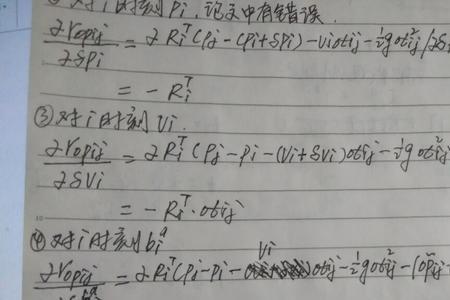 ② 对i时刻Pi,论文中有错误.
∂rΔpij / ∂δpi = ∂ Ri^T (Pj - (Pi+δPi) - viΔtij - ½gΔtij² / ∂δ
= - Ri^T
③ 对i时刻Vi.
∂rΔpij / ∂δVi = ∂ Ri^T (Pj - Pi - (Vi+δVi)Δtij - ½gΔtij²
= - Ri^T · Δtij
④ 对i时刻bi^a
Vi
∂rΔpij = ∂ Ri^T (Pj - Pi - Δtij - ½gΔtij² - [Δp̃ij